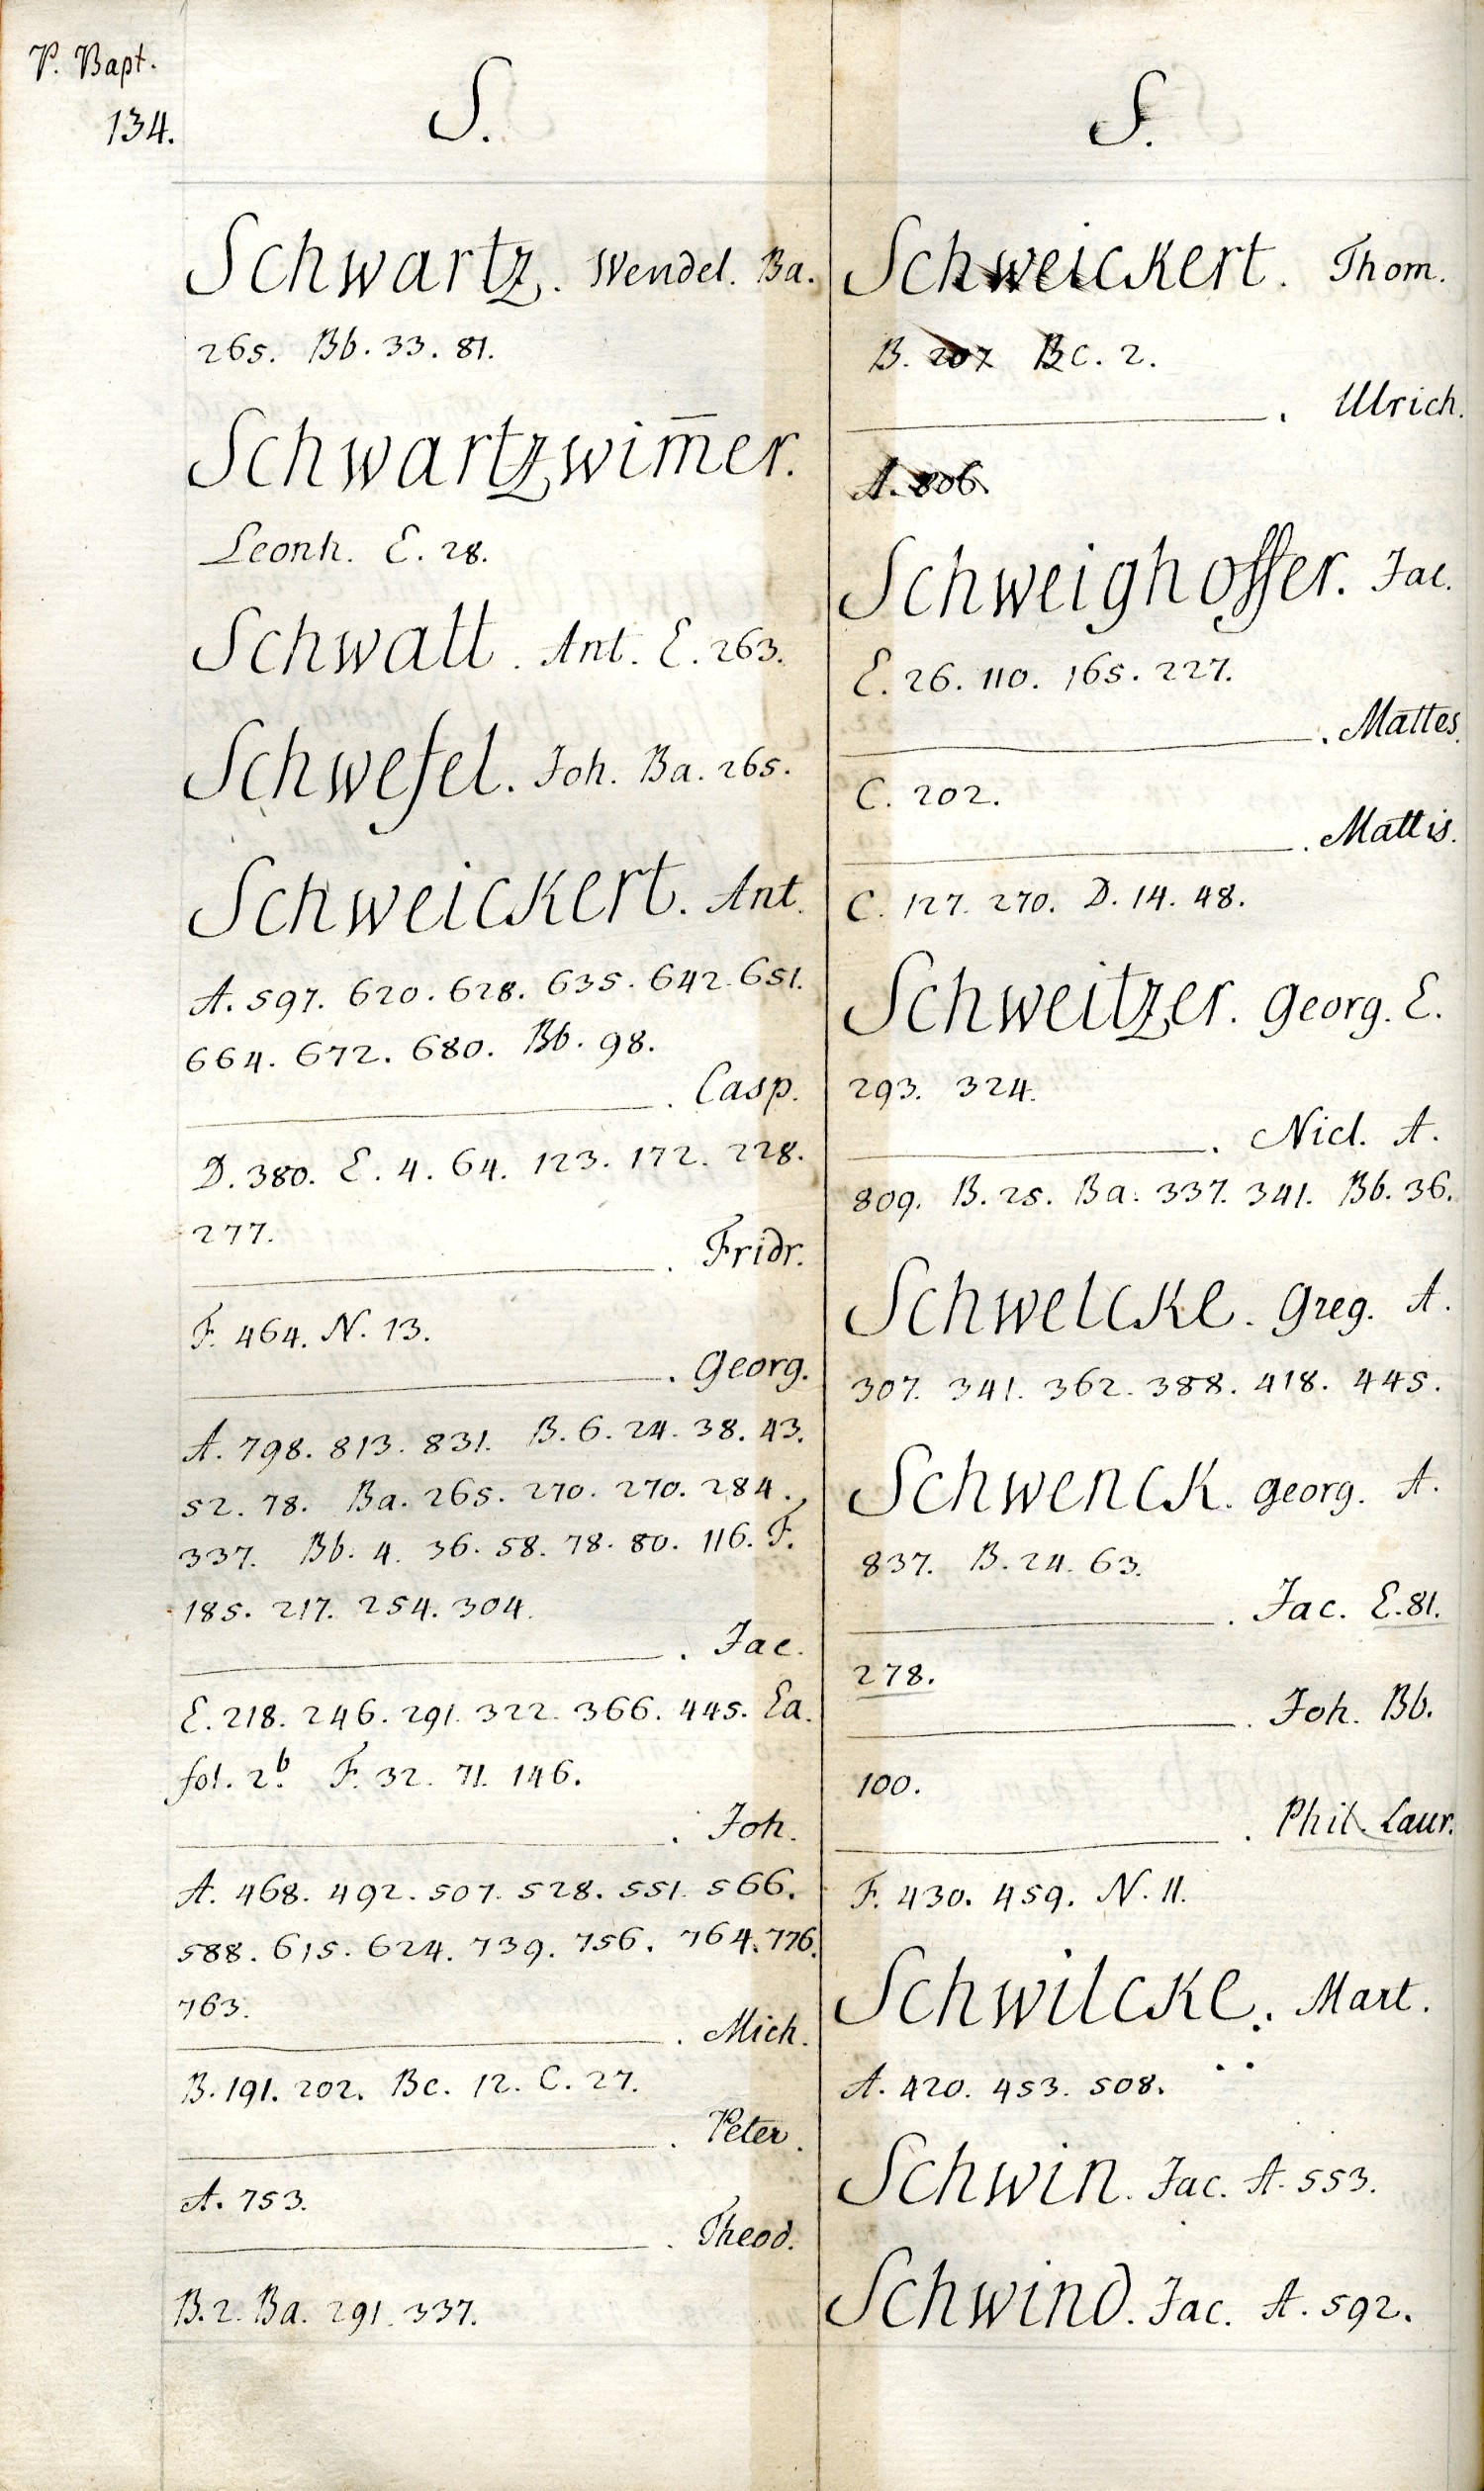 P. Bapt.
134.
S.
Schwartz. Wendel. Ba.
265. Bb. 33. 81.
Schwartzwim̅er.
Leonh. E. 28.
Schwatt. Ant. E. 263.
Schwefel. Joh. Ba. 265.
Schweickert. Ant.
A. 597. 620. 628. 635. 642. 651.
664. 672. 680. Bb. 98.
. Casp.
D. 380. E. 4. 64. 123. 172. 228.
277.
. Fridr.
F. 464. N. 13.
. Georg.
A. 798. 813. 831. B. 6. 24. 38. 43.
52. 78. Ba. 265. 270. 270. 284.
337. Bb. 4. 36. 58. 78. 80. 116. F.
185. 217. 254. 304.
. Jac.
E. 218. 246. 291. 322. 366. 445. Ea.
fol. 2.b F. 32. 71. 146.
. Joh.
A. 468. 492. 507. 528. 551. 566.
588. 615. 624. 739. 756. 764. 776.
763.
. Mich.
B. 191. 202. Bc. 12. C. 27.
. Peter.
A. 753.
. Theod.
B. 2. Ba. 291. 337.
S.
Schweickert. Thom.
B. 207 Bc. 2.
. Ulrich.
A. 806.
Schweighoffer. Jac.
E. 26. 110. 165. 227.
. Mattes.
C. 202.
. Mattis.
C. 127. 270. D. 14. 48.
Schweitzer. Georg. E.
293. 324.
. Nicl. A.
809. B. 25. Ba. 337. 341. Bb. 36.
Schwelcke. Greg. A.
307. 341. 362. 388. 418. 445.
Schwenck. Georg. A.
837. B. 24. 63.
. Jac. E. 81.
278.
. Joh. Bb.
100.
. Phil. Laur.
F. 430. 459. N. 11.
Schwilcke. Mart.
A. 420. 453. 508.
Schwin. Jac. A. 553.
Schwind. Jac. A. 592.